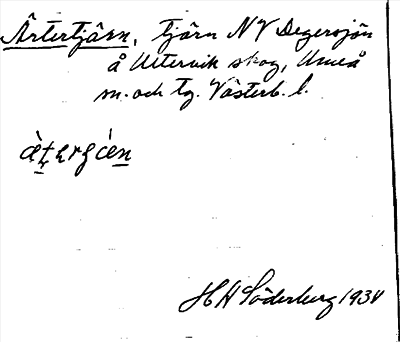 Årtertjärn, tjärn NV Degersjön
å Yttervik skog, Umeå
m. och tg. Västerb. l.
H A Söderberg 1934